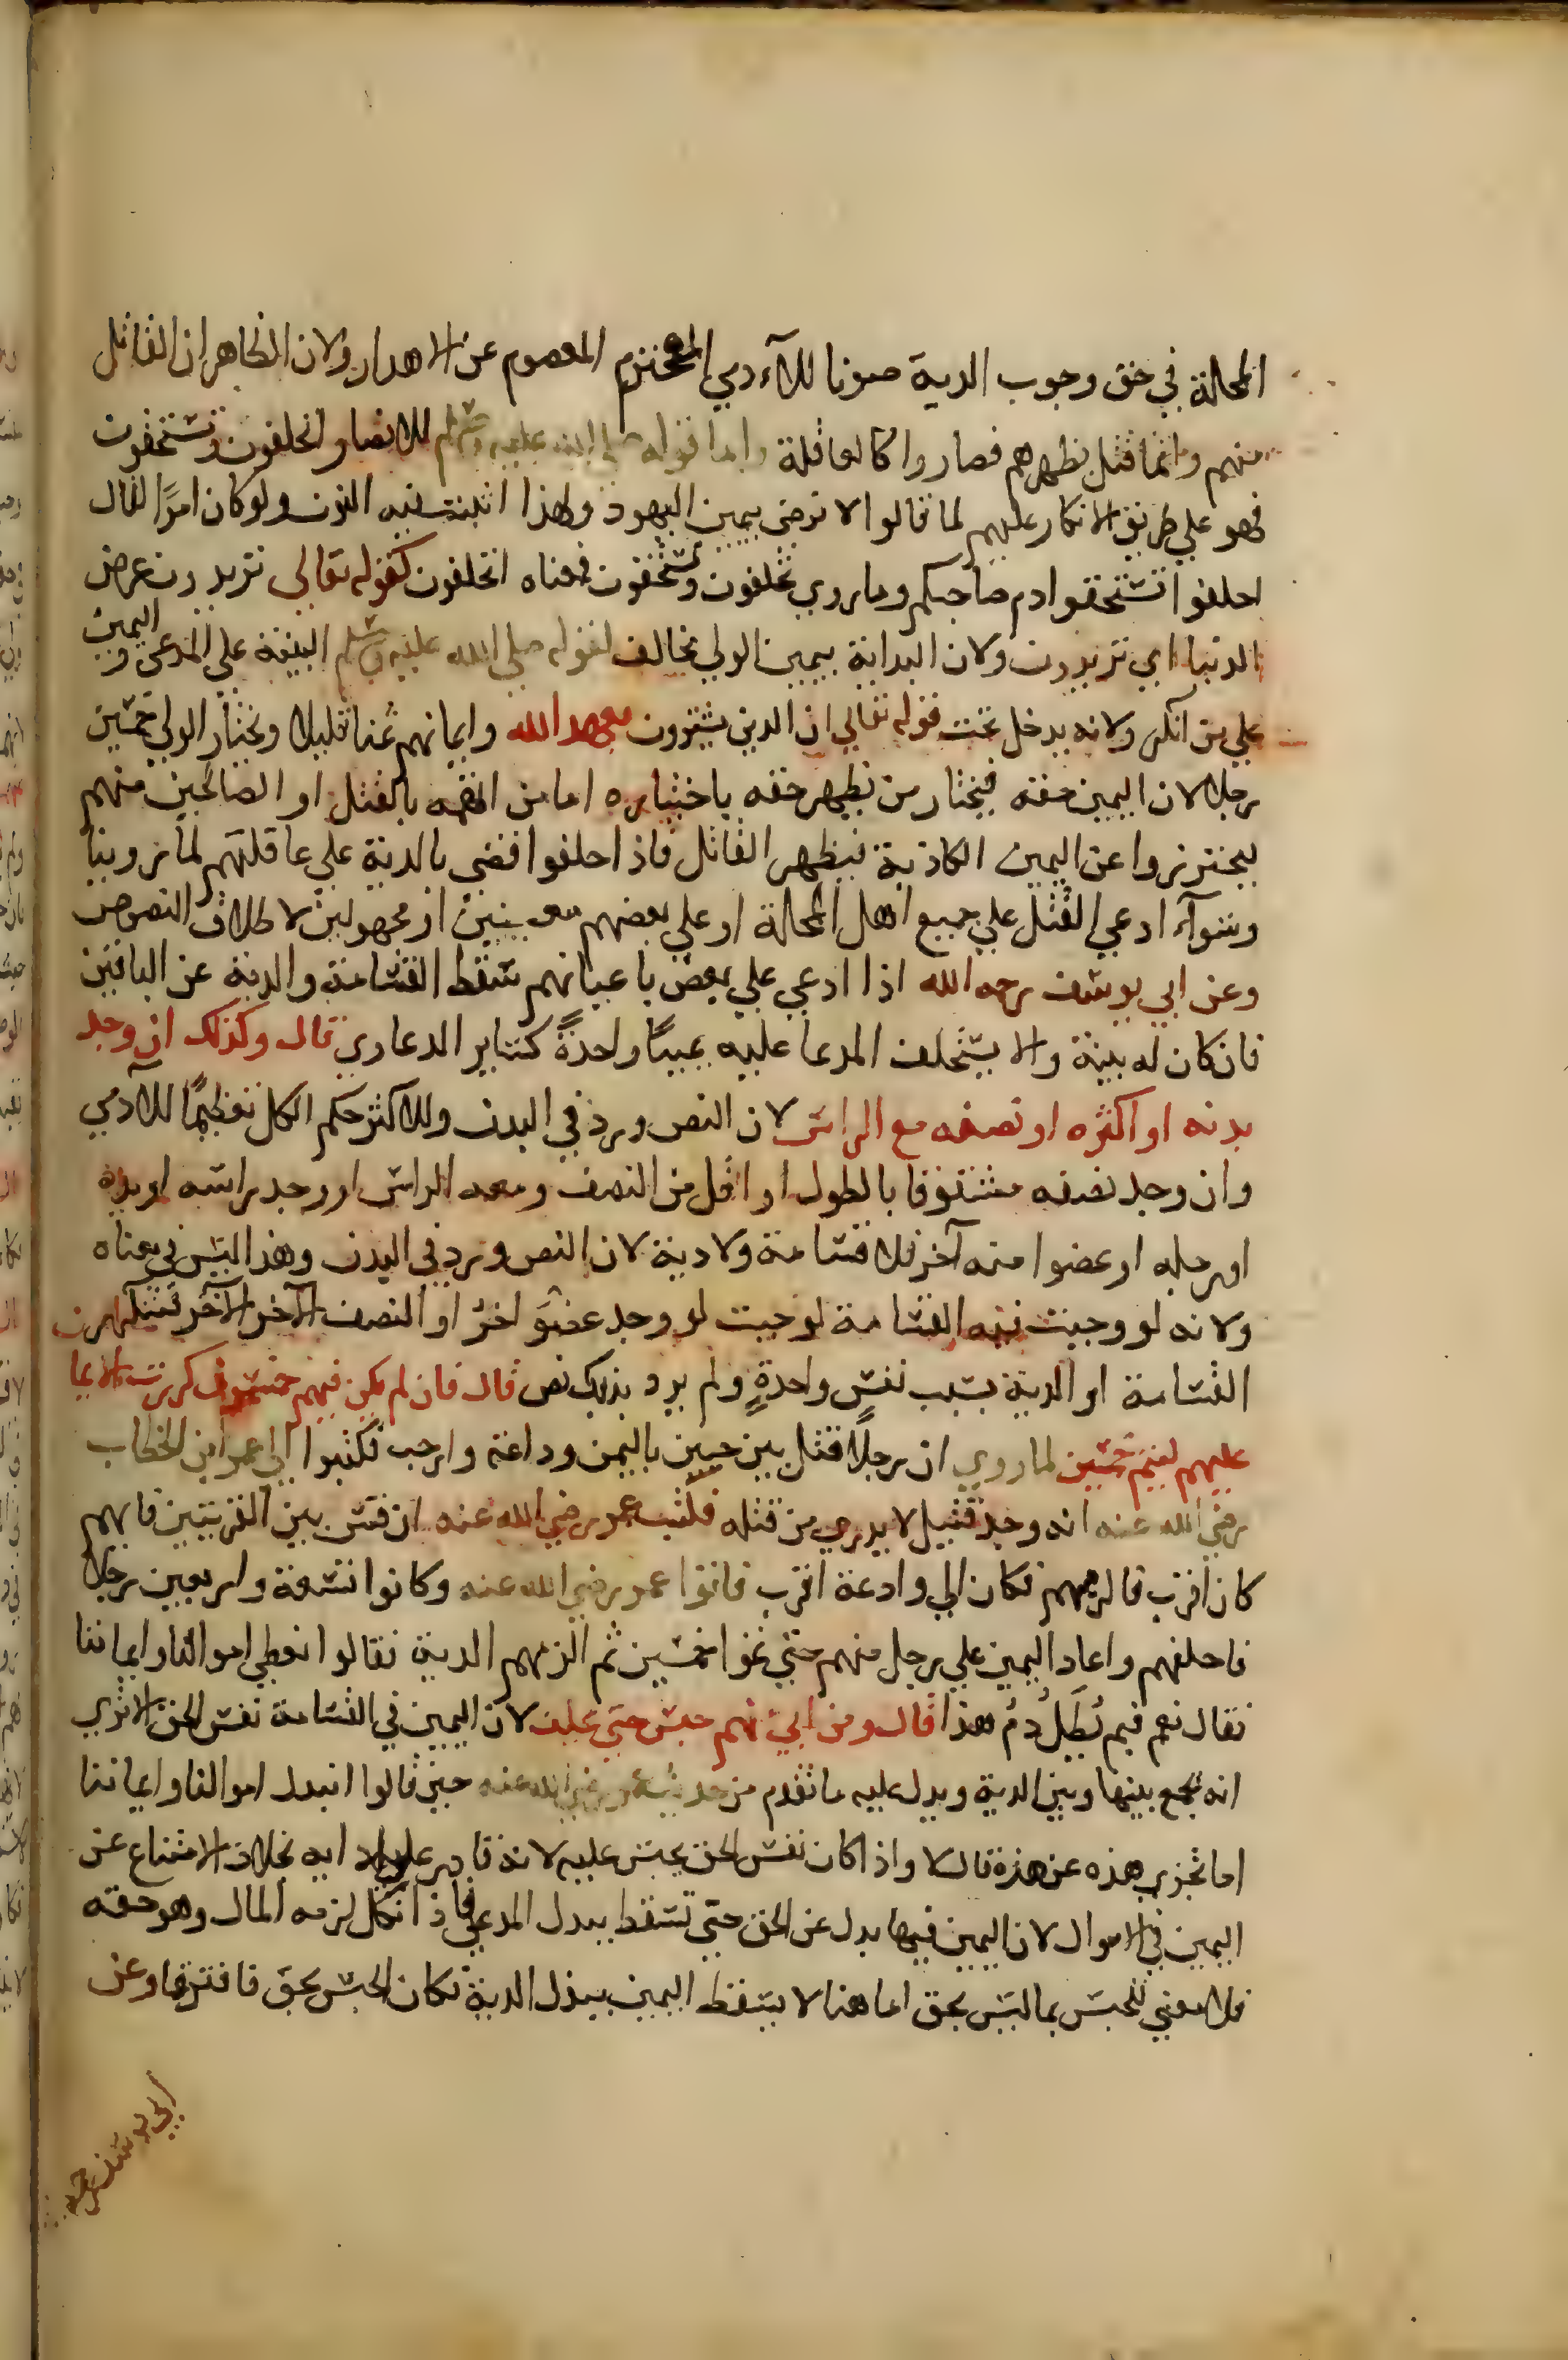 المحلة في حق وجوب الدية صونا للآدمي المحترم المعصوم عن الاهدار ولان الظاهر ان القاتل
منهم وانما قتل بظهرهم فصاروا كالعاقلة واما قوله صلى الله عليه وسلم للانصار اتحلفون وتستحقون
فهو علي طريق الانكار عليهم لما قالوا لا نرضى بيمين اليهود ولهذا اثبت فيه النون ولو كان امرًا لقال
احلفوا تستحقوا دم صاحبكم وما روي تحلفون وتستحقون فمعناه اتحلفون كقوله تعالي تريدون عرض
الدنيا اي تريدون ولان البداية بيمين الولي تخالف لقوله صلي الله عليه وسلم البينة علي المدعى واليمين
علي من انكر ولانه يدخل تحت قوله تعالي ان الذين يشترون بعهد الله وايمانهم ثمنا قليلا ويختار الولي خمسين
رجلا لان اليمين حقه فيختار من يظهر حقه باختياره اما من اتهمه بالقتل او الصالحين منهم
ليحترزوا عن اليمين الكاذبة فيظهر القاتل فاذا حلفوا قضي بالدية علي عاقلتهم لما روينا
وسوآء ادعي القتل علي جميع اهل المحلة او علي بعضهم معينين او مجهولين لاطلاق النصوص
وعن ابي يوسف رحمه الله اذا ادعي علي بعض باعيانهم تسقط القسامة والدية عن الباقين
فان كان له بينة والا يستحلف المدعا عليه يمينًا واحدةً كساير الدعاوي قال وكذلك ان وجد
بدنه او اكثره او نصفه مع الراس لان النص ورد في البدن وللاكثر حكم الكل تعظيمًا للآدمي
وان وجد نصفه مشقوقا بالطول او اقل من النصف ومعه الراس او وجد راسه او يده
او رجله او عضوا منه آخر فلا قسامة ولا دية لان النص ورد في البدن وهذا ليس في معناه
ولانه لو وجبت فيه القسامة لوجبت لو وجد عضوَ اخرُ او النصف الآخر فتتكرر
القسامة او الدية بسبب نفسٍ واحدةٍ ولم يرد بذلك نص قال فان لم يكن فيهم خمسون كررت الايما
عليهم ليتم خمسين لما روي ان رجلًا قتل بين حيين باليمن وداعة وارحب فكتبوا الي عمر ابن الخطاب
رضي الله عنه انه وجد قتيل لا يدري من قتله فكتب عمر رضي الله عنه ان قس بين القريتين فايهم
كان اقرب فالزمهم فكان الي وادعة اقرب فاتوا عمر رضي الله عنه وكانوا تسعة واربعين رجلا
فاحلفهم واعاد اليمين علي رجل منهم حتي تموا خمسين ثم الزمهم الدية فقالوا نعطي اموالنا وايماننا
فقال نعم فبم يُطَلُ دمُ هذا قال ومن ابي منهم حبس حتي يحلف لان اليمين في القسامة نفس الحق الا تري
انه يجمع بينها وبين الدية ويدل عليه ما تقدم من حديث عمر رضي الله عنه حين قالوا انبذل اموالنا وايماننا
اما تجزي هذه عن هذه قال لا واذا كان نفس الحق يحبس عليه لانه قادر علي ادايه بخلاف الامتناع عن
اليمين في الاموال لان اليمين فيها بدل عن الحق حتي تسقط ببذل المدعي فاذا نكل لزمه المال وهو حقه
فلا معني للحبس بما ليس بحق اما هنا لا يسقط اليمين ببذل الدية فكان الحبس بحق فافترقا وعن
ابي يوسف رحمه